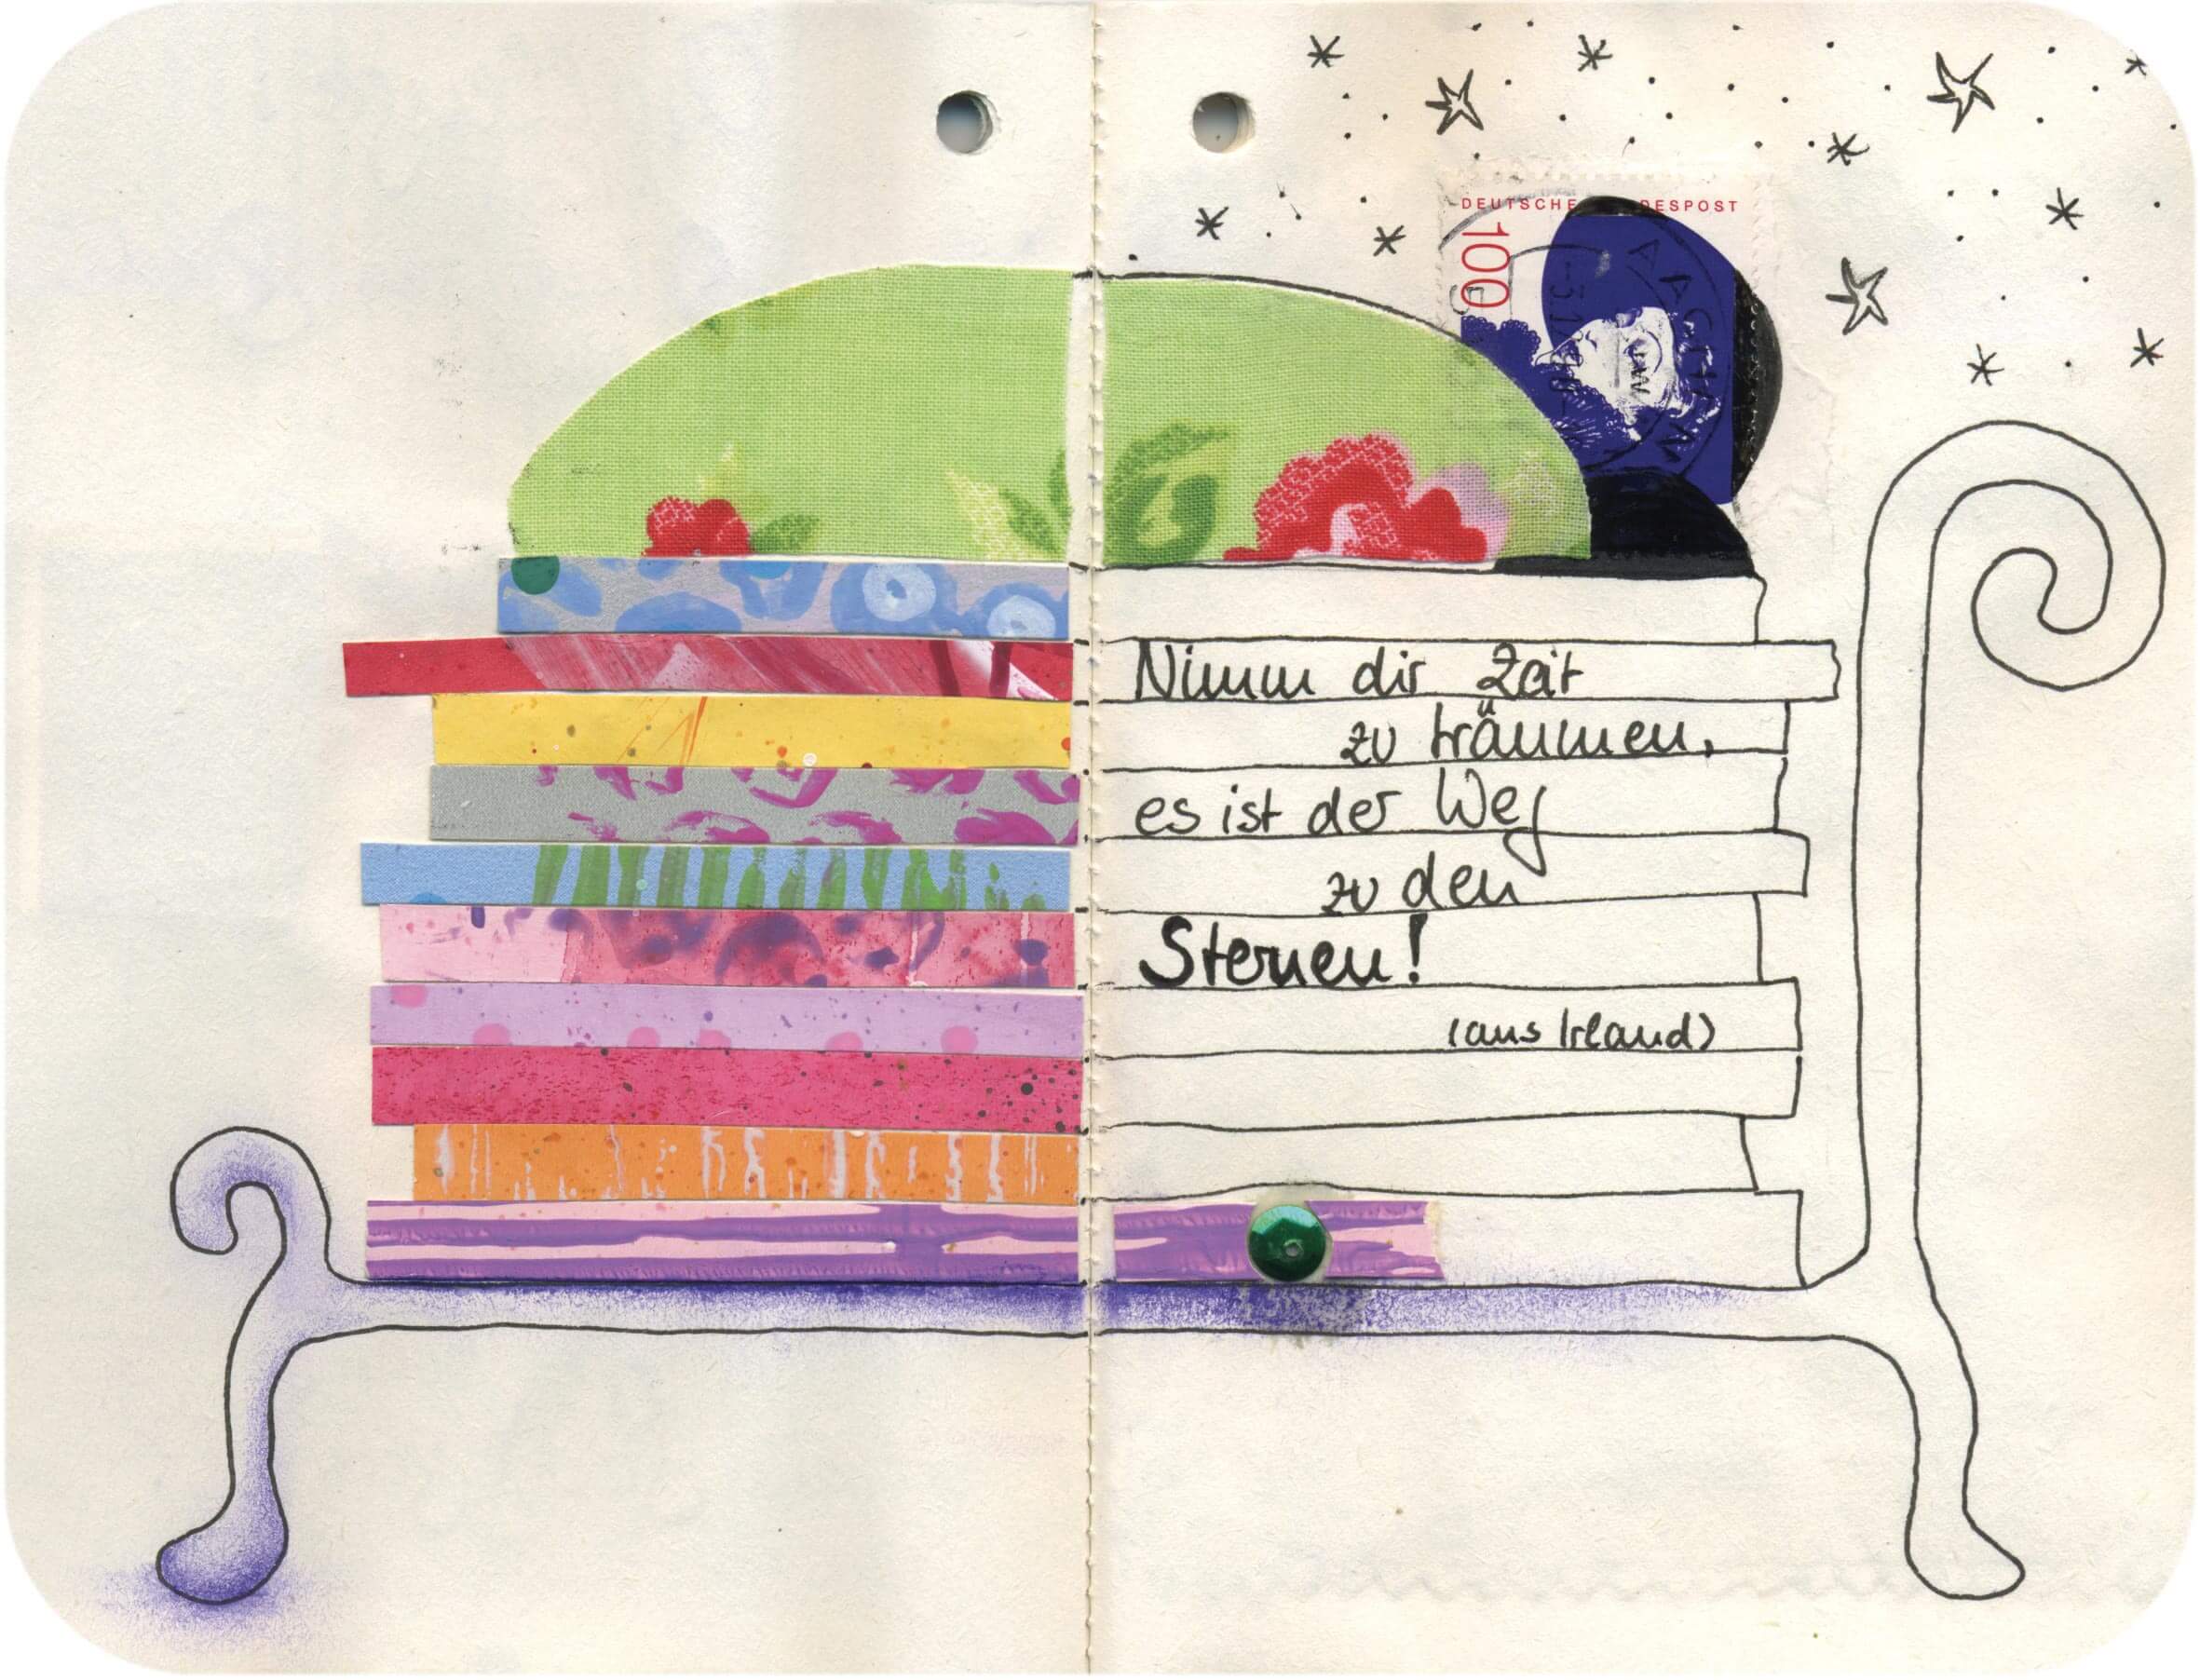 DEUTSCHE BUNDESPOST
100
Nimm dir Zeit
zu träumen,
es ist der Weg
zu den
Sternen!
(aus Irland)